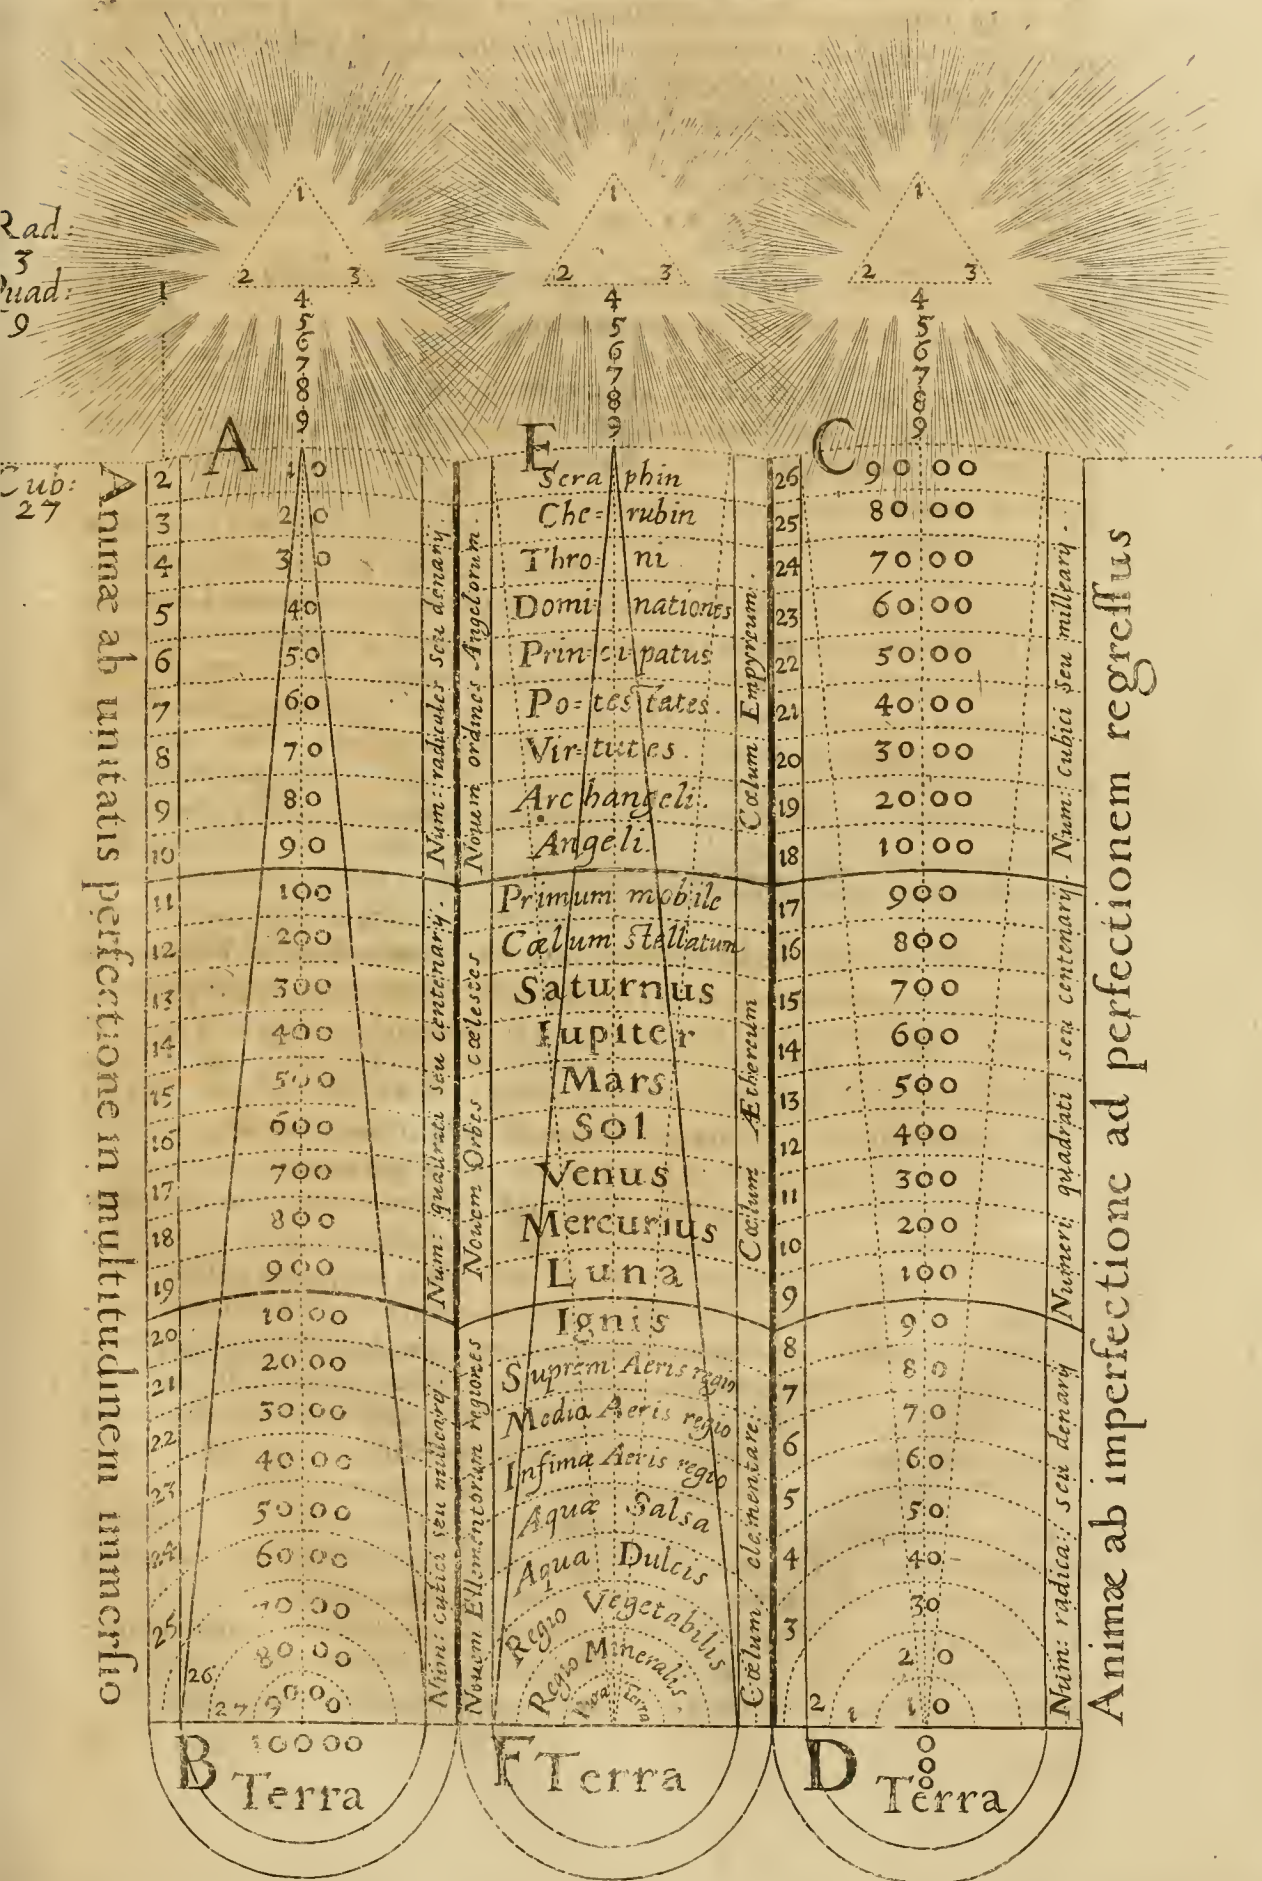 Rad:
3
Quad:
9
Cub:
27
1
1
2 3
4
5
6
7
8
9
1
2 3
4
5
6
7
8
9
1
2 3
4
5
6
7
8
9
Animæ ab unitatis perfectione in multitudinem immersio
A
2 10
3 20
4 30
5 40
6 50
7 60
8 70
9 80
10 90
11 100
12 200
13 300
14 400
15 500
16 600
17 700
18 800
19 900
20 1000
21 2000
22 3000
23 4000
24 5000
6000
25 7000
26 8000
27 9000
B 10000
Terra
Num: radicales seu denarij.
Num: quadrati seu centenarij.
Num: cubici seu millearij.
Nouem ordines Angelorum.
Nouem Orbes cœlestes
Nouem Ellementorum regiones
E
Seraphin
Che=rubin
Throni
Dominationes
Principatus
Po=testates.
Virtutes.
Archangeli.
Angeli.
Primum mobile
Cœlum stellatum
Saturnus
Iupiter
Mars
Sol
Venus
Mercurius
Luna
Ignis
Suprem Aeris regio
Media Aeris regio
Infimæ Aeris regio
Aquæ Salsa
Aqua Dulcis
Regio Vegetabilis
Regio Mineralis.
Terra
F Terra
Cœlum Empyreum.
Cœlum Æthereum
Cœlum elementare.
C
26 9000
25 8000
24 7000
23 6000
22 5000
21 4000
20 3000
19 2000
18 1000
17 900
16 800
15 700
14 600
13 500
12 400
11 300
10 200
9 100
8 90
7 80
6 70
5 60
4 50
40
3 30
2 20
1 10
D
0
0
0
0
Terra
Num: Cubici seu millearij.
Numeri quadrati seu centenarij.
Num: radica: seu denarij
Animæ ab imperfectione ad perfectionem regressus